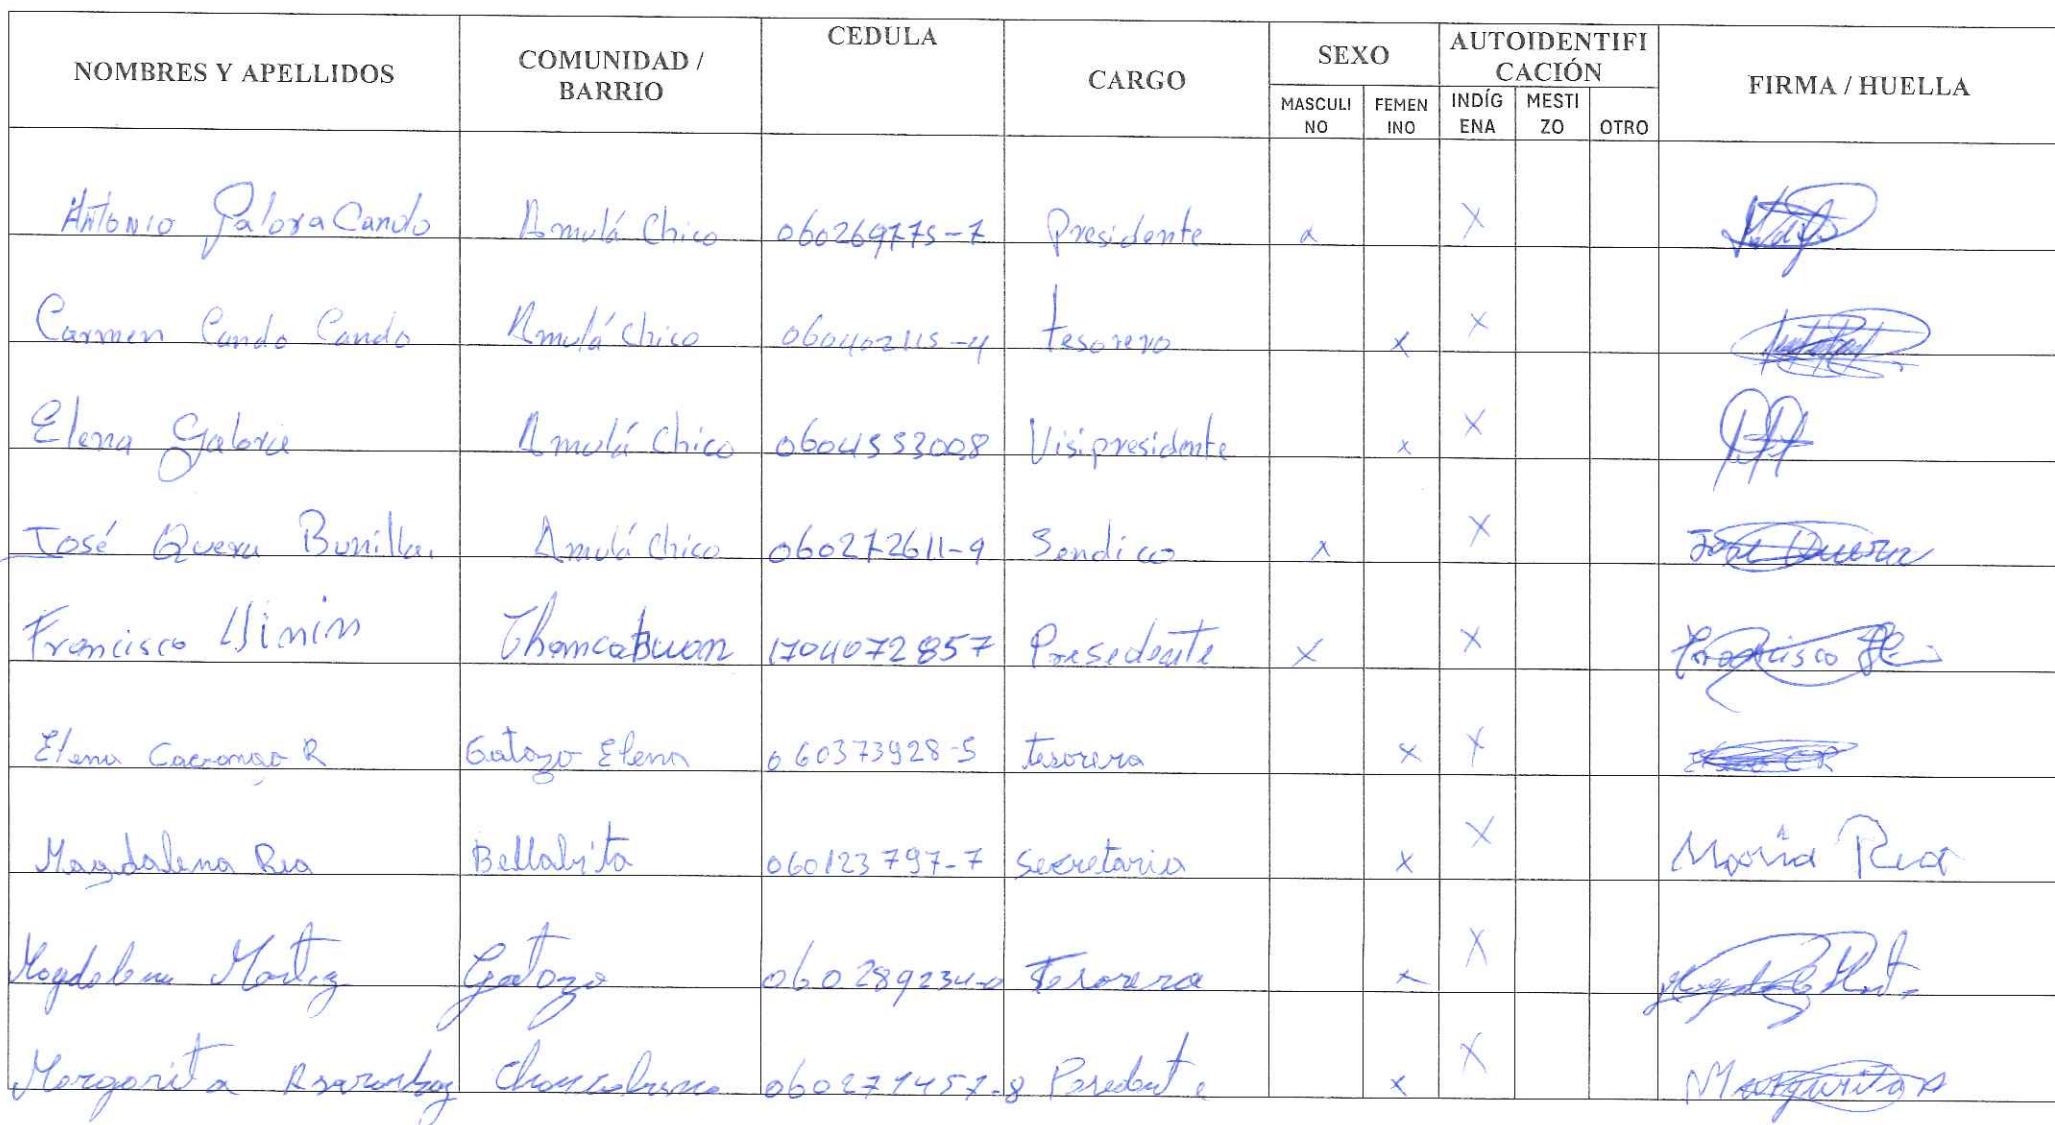 NOMBRES Y APELLIDOS COMUNIDAD / BARRIO CEDULA CARGO SEXO AUTOIDENTIFI CACIÓN FIRMA / HUELLA
MASCULI NO FEMEN INO INDÍG ENA MESTI ZO OTRO
Antonio Galora Cando Amulá Chico 060269775-7 Presidente x X
Carmen Cando Cando Amulá Chico 060402115-4 tesorero x X
Elena Galora Amulá Chico 0604553008 Visipresidente x X
José Quera Bunilla Amulá Chico 060272611-9 Sendico x X José Quera
Francisco Chancahuan 1704072857 Presedente X X Francisco
Elena Cacuango R Gatazo Elena 060373928-5 tesorera x X
Magdalena Rea Bellabita 060123797-7 secretaria x X María Rea
Magdalena Gatazo 060289234-0 Tesorera x X
Margarita Chancahuan 060271457-8 x X Margarita